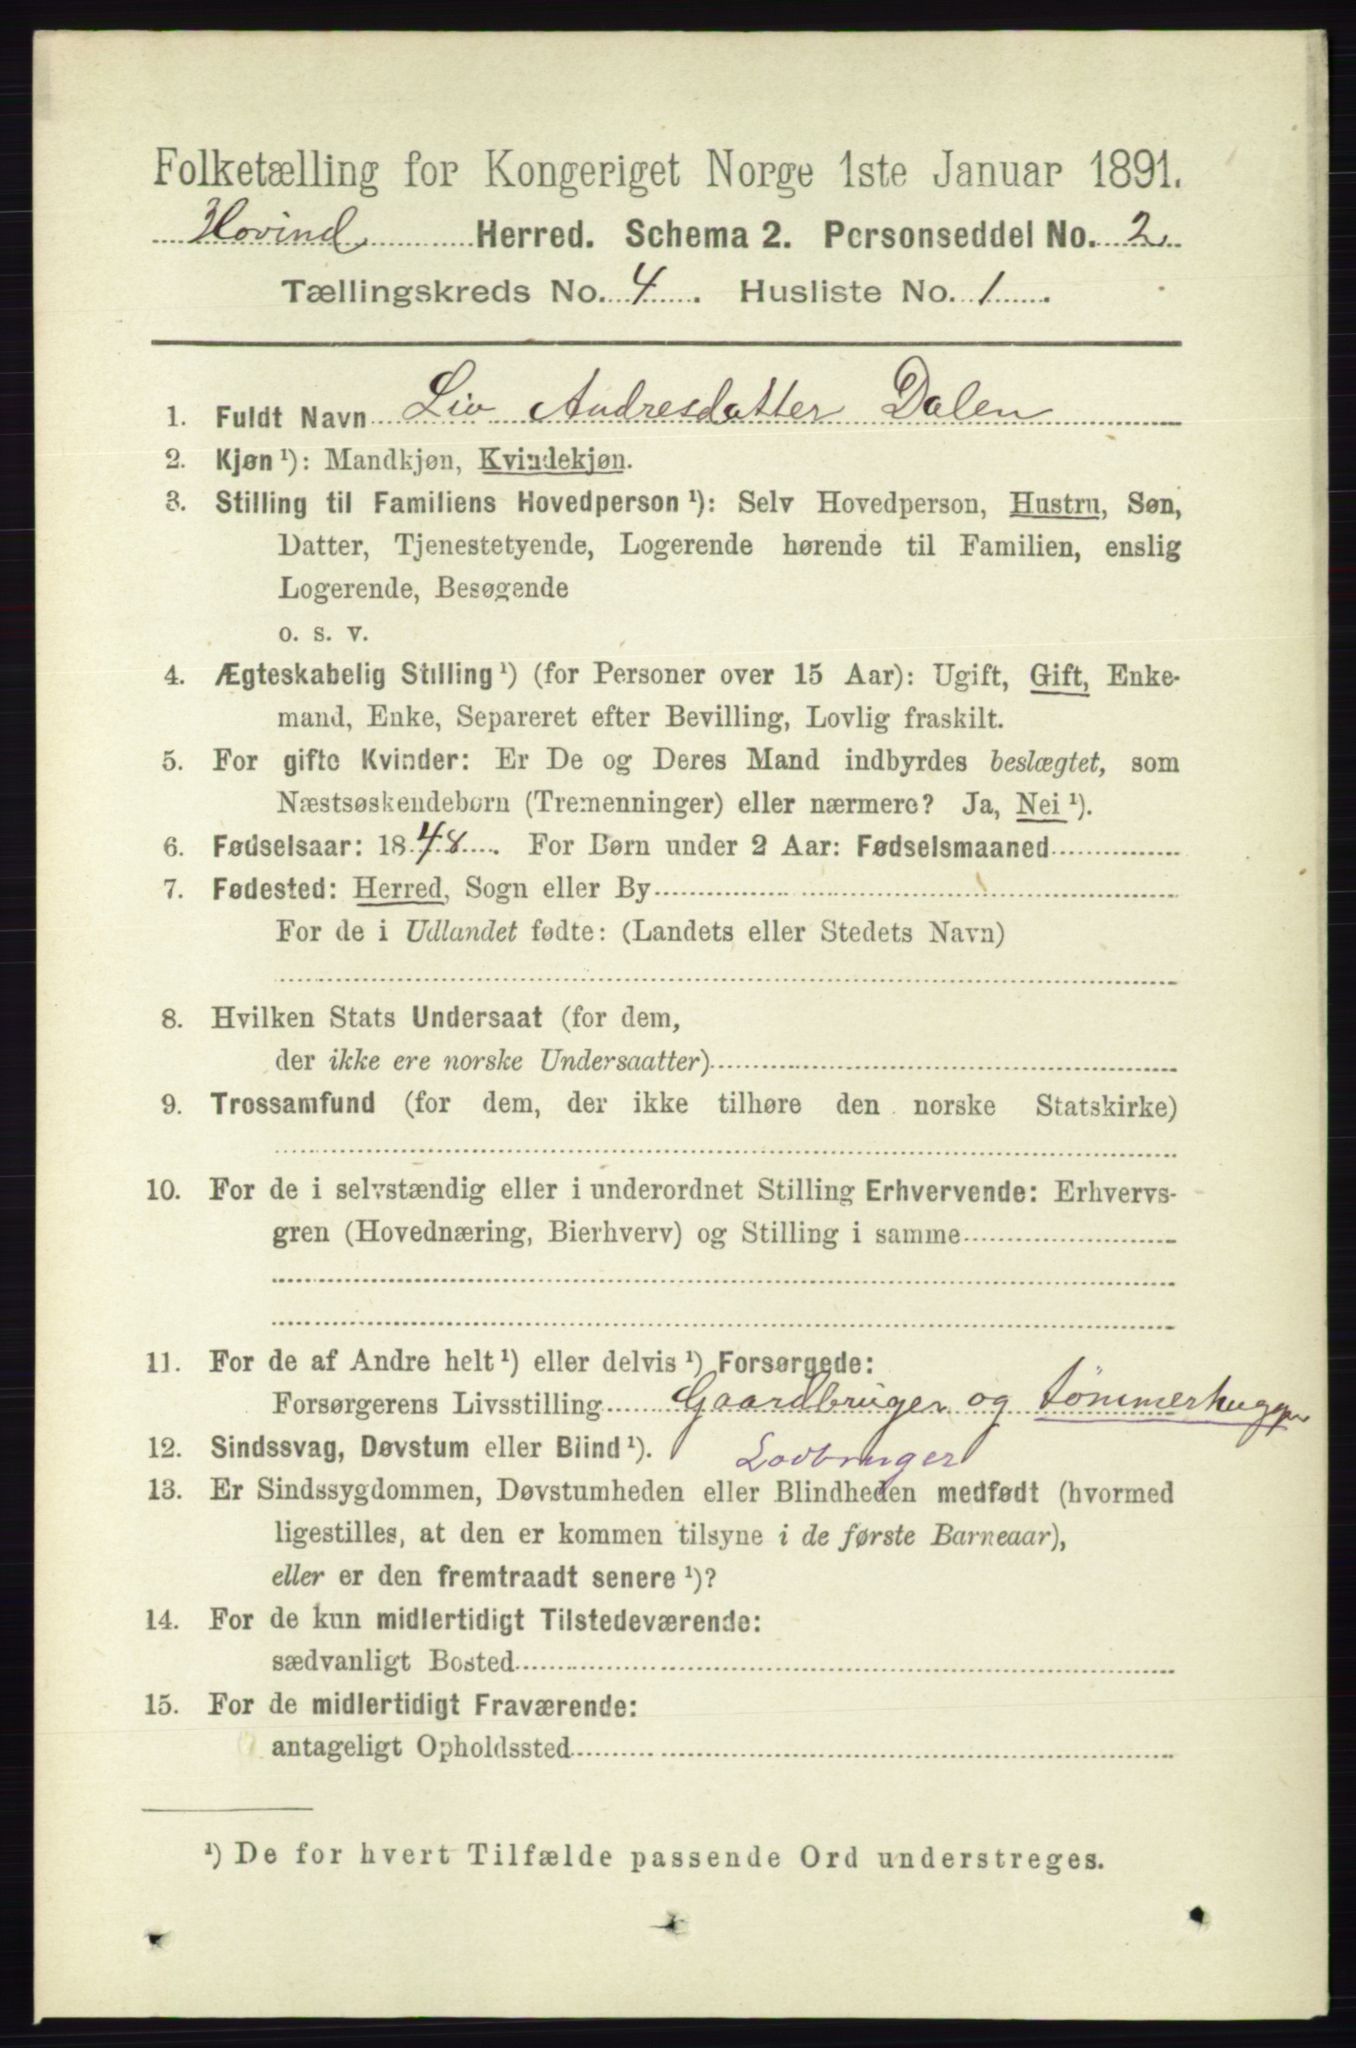 Folketælling for Kongeriget Norge 1ste Januar 1891.
Hovind Herred. Schema 2. Personseddel No. 2
Tællingskreds No. 4. Husliste No. 1.
1. Fuldt Navn Liv Andresdatter Dalen
2. Kjøn ¹): Mandkjøn, Kvindekjøn.
3. Stilling til Familiens Hovedperson ¹): Selv Hovedperson, Hustru, Søn,
Datter, Tjenestetyende, Logerende hørende til Familien, enslig
Logerende, Besøgende
o. s. v.
4. Ægteskabelig Stilling ¹) (for Personer over 15 Aar): Ugift, Gift, Enke-
mand, Enke, Separeret efter Bevilling, Lovlig fraskilt.
5. For gifte Kvinder: Er De og Deres Mand indbyrdes beslægtet, som
Næstsøskendebørn (Tremenninger) eller nærmere? Ja, Nei ¹).
6. Fødselsaar: 1848. For Børn under 2 Aar: Fødselsmaaned
7. Fødested: Herred, Sogn eller By
For de i Udlandet fødte: (Landets eller Stedets Navn)
8. Hvilken Stats Undersaat (for dem,
der ikke ere norske Undersaatter)
9. Trossamfund (for dem, der ikke tilhøre den norske Statskirke)
10. For de i selvstændig eller i underordnet Stilling Erhvervende: Erhvervs-
gren (Hovednæring, Bierhverv) og Stilling i samme
11. For de af Andre helt ¹) eller delvis ¹) Forsørgede:
Forsørgerens Livsstilling Gaardbruger og tömmerhugger
12. Sindssvag, Døvstum eller Blind ¹).
13. Er Sindssygdommen, Døvstumheden eller Blindheden medfødt (hvormed
ligestilles, at den er kommen tilsyne i de første Barneaar),
eller er den fremtraadt senere ¹)?
14. For de kun midlertidigt Tilstedeværende:
sædvanligt Bosted
15. For de midlertidigt Fraværende:
antageligt Opholdssted
¹) De for hvert Tilfælde passende Ord understreges.